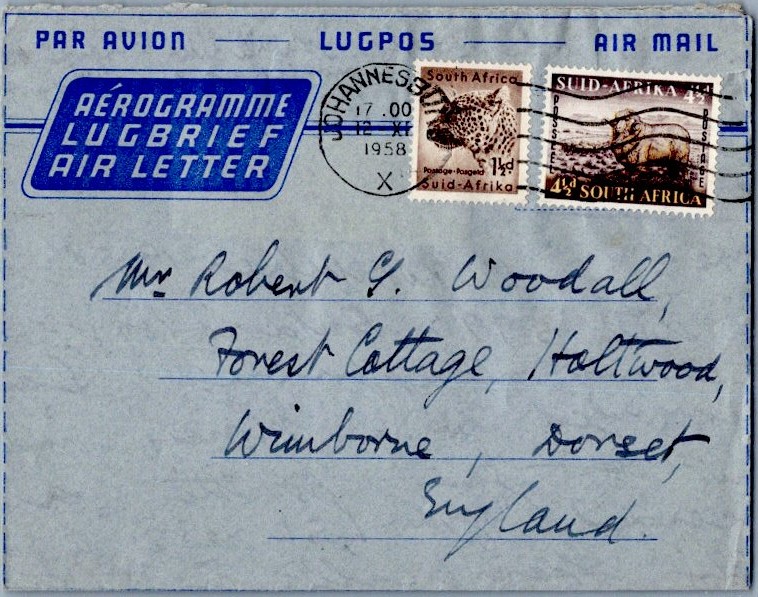 PAR AVION LUGPOS AIR MAIL
AÉROGRAMME
LUGBRIEF
AIR LETTER
JOHANNESBU
17.00
12 XI
1958
X
South Africa
Postage·Posgeld 1½d
Suid-Afrika
SUID-AFRIKA 4½
POSTAGE
4½d SOUTH AFRICA
Mr Robert G. Woodall,
Forest Cottage, Holtwood,
Wimborne, Dorset,
England.